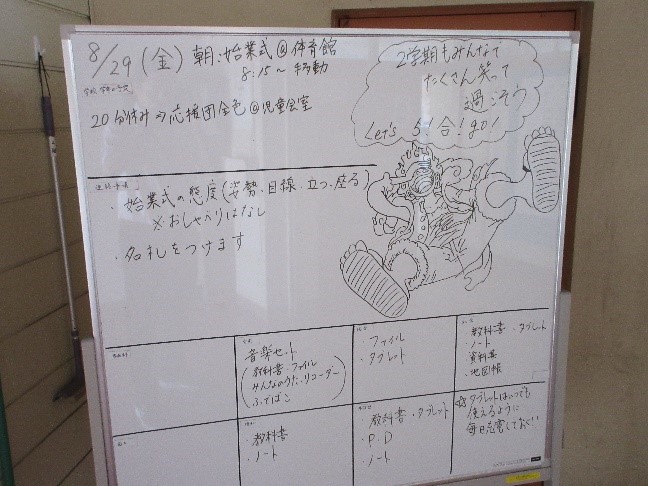 8/29(金) 朝:始業式@体育館
8:15〜移動
20分休み⇒応援団全色@児童会室
2学期もみんなで
たくさん笑って
過ごそう
Let's 5 合! go!
・始業式の態度(姿勢、目線、立つ、座る)
※おしゃべりはなし
・名札をつけます
音楽セット
(教科書・ファイル
みんなのうた・リコーダー)
ふでばこ
・ファイル
・タブレット
・教科書・タブレット
・ノート
・資料集
・地図帳
・教科書
・ノート
・教科書・タブレット
・P.D
・ノート
タブレットはいつでも
使えるように
毎日充電しておく!!